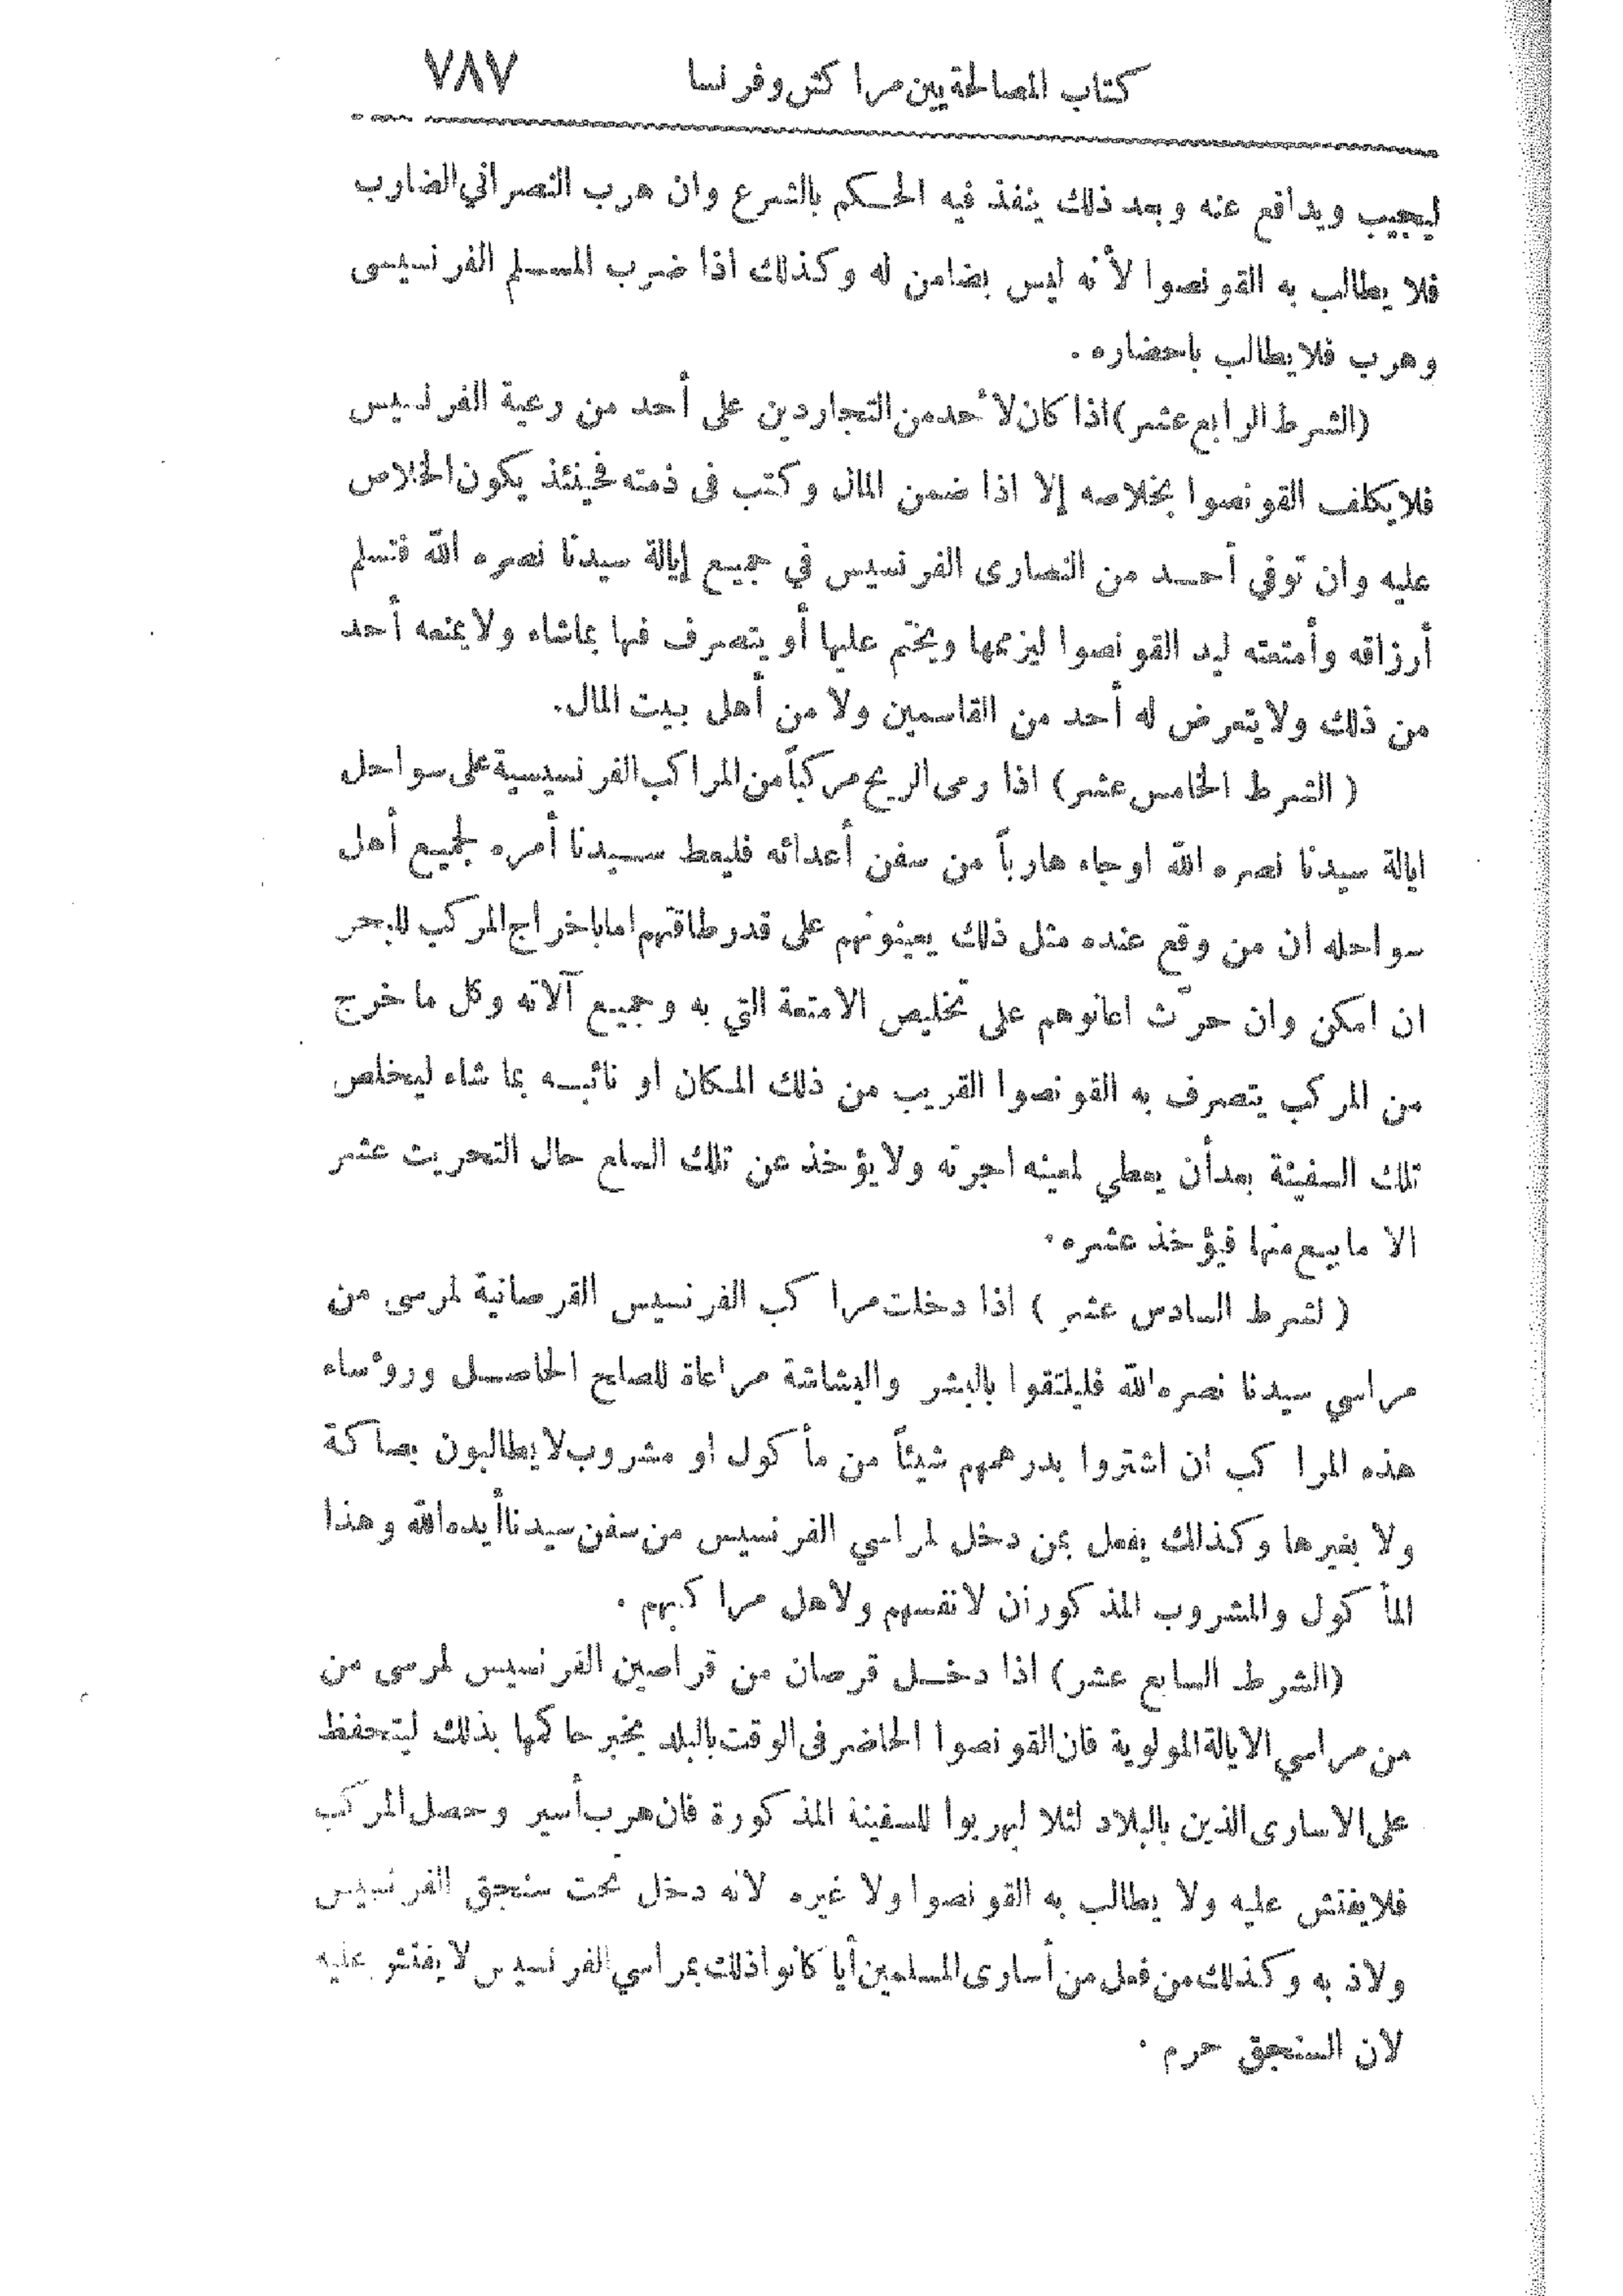 كتاب المصالحة بين مراكش وفرنسا ٧٨٧
ليجيب ويدافع عنه وبعد ذلك ينفذ فيه الحكم بالشرع وان هرب النصراني الضارب
فلا يطالب به القونصوا لأنه ليس بضامن له وكذلك اذا ضرب المسلم الفرنسيسى
وهرب فلا يطالب باحضاره .
(الشرط الرابع عشر) اذا كان لأحد من التجار دين على أحد من رعية الفرنسيس
فلا يكلف القونصوا بخلاصه إلا اذا ضمن المال وكتب فى ذمته فحينئذ يكون الخلاص
عليه وان توفي أحد من النصارى الفرنسيس في جميع إيالة سيدنا نصره الله فتسلم
أرزاقه وأمتعته ليد القونصوا ليزممها ويختم عليها أو يتصرف فيها بماشاء ولا يمنعه أحد
من ذلك ولا يتعرض له أحد من القاسمين ولا من أهل بيت المال.
( الشرط الخامس عشر) اذا رمى الريح مركباً من المراكب الفرنسيسية على سواحل
ايالة سيدنا نصره الله او جاء هارباً من سفن أعدائه فليعط سيدنا أمره لجميع أهل
سواحله ان من وقع عنده مثل ذلك يعينونهم على قدر طاقتهم اما باخراج المركب للبحر
ان امكن وان حرّث اعانوهم على تخليص الامتعة التي به وجميع آلاته وكل ما خرج
من المركب يتصرف به القونصوا القريب من ذلك المكان او نائبه بما شاء ليتخلص
تلك السفينة بعد أن يعطي لمعينه اجرته ولا يؤخذ عن تلك السلع حال التحريث عشر
الا ما بيع منها فيؤخذ عشره .
( لشرط السادس عشر ) اذا دخلت مراكب الفرنسيس القرصانية لمرسى من
مراسي سيدنا نصره الله فليلتقوا بالبشر والبشاشة مراعاة للصلح الحاصل ورؤساء
هذه المراكب ان اشتروا بدرهمهم شيئاً من مأكول او مشروب لا يطالبون بصاكة
ولا بغيرها وكذلك يفعل بمن دخل لمراسي الفرنسيس من سفن سيدنا أيده الله وهذا
المأكول والمشروب المذكوران لانفسهم ولاهل مراكبهم .
(الشرط السابع عشر) اذا دخل قرصان من قراصين الفرنسيس لمرسى من
من مراسي الايالة المولوية فان القونصوا الحاضر فى الوقت بالبلد يخبر حاكمها بذلك ليتحفظ
على الاسارى الذين بالبلاد لئلا ليهربوا للسفينة المذكورة فان هرب أسير وحصل المركب
فلا يفتش عليه ولا يطالب به القونصوا ولا غيره لانه دخل تحت سنجق الفرنسيس
ولاذ به وكذلك من فعل من أسارى المسلمين أيا كانوا ذلك بمراسي الفرنسيس لا يفتشو عليه
لان السنجق حرم .